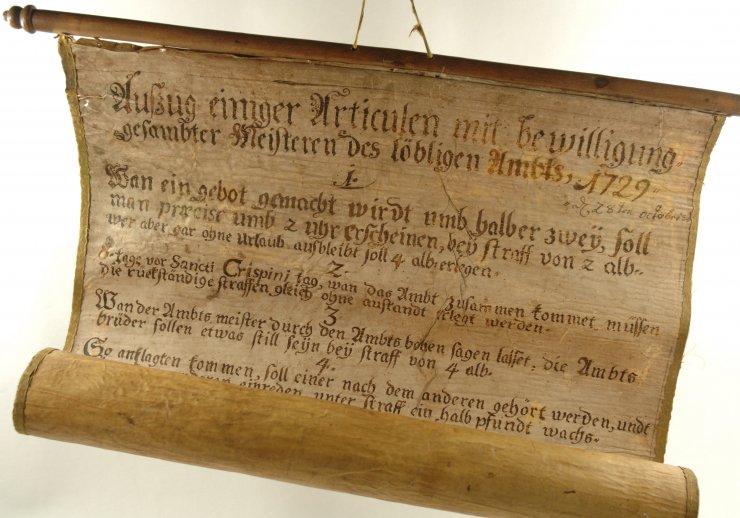 Außzug einiger Articulen mit bewilligung
gesambter Meisteren des löbligen Ambts, 1729.
d. 28tn octobris
1.
Wan ein gebot gemacht wirdt umb halber zwey, soll
man præcise umb 2 uhr erscheinen, bey straff von 2 alb.
wer aber gar ohne Urlaub ausbleibt soll 4 alb erlegen.
2.
8 tage vor Sancti Crispini tag, wan das Ambt zusammen kommet müssen
die rückständige straffen gleich ohne anstandt erlegt werden.
3
Wan der Ambts meister durch den Ambts botten sagen lasset, die Ambts
brüder sollen etwas still seyn bey straff von 4 alb.
4.
So anklagten kommen, soll einer nach dem anderen gehört werden, undt
einreden unter straff ein halb pfundt wachs.